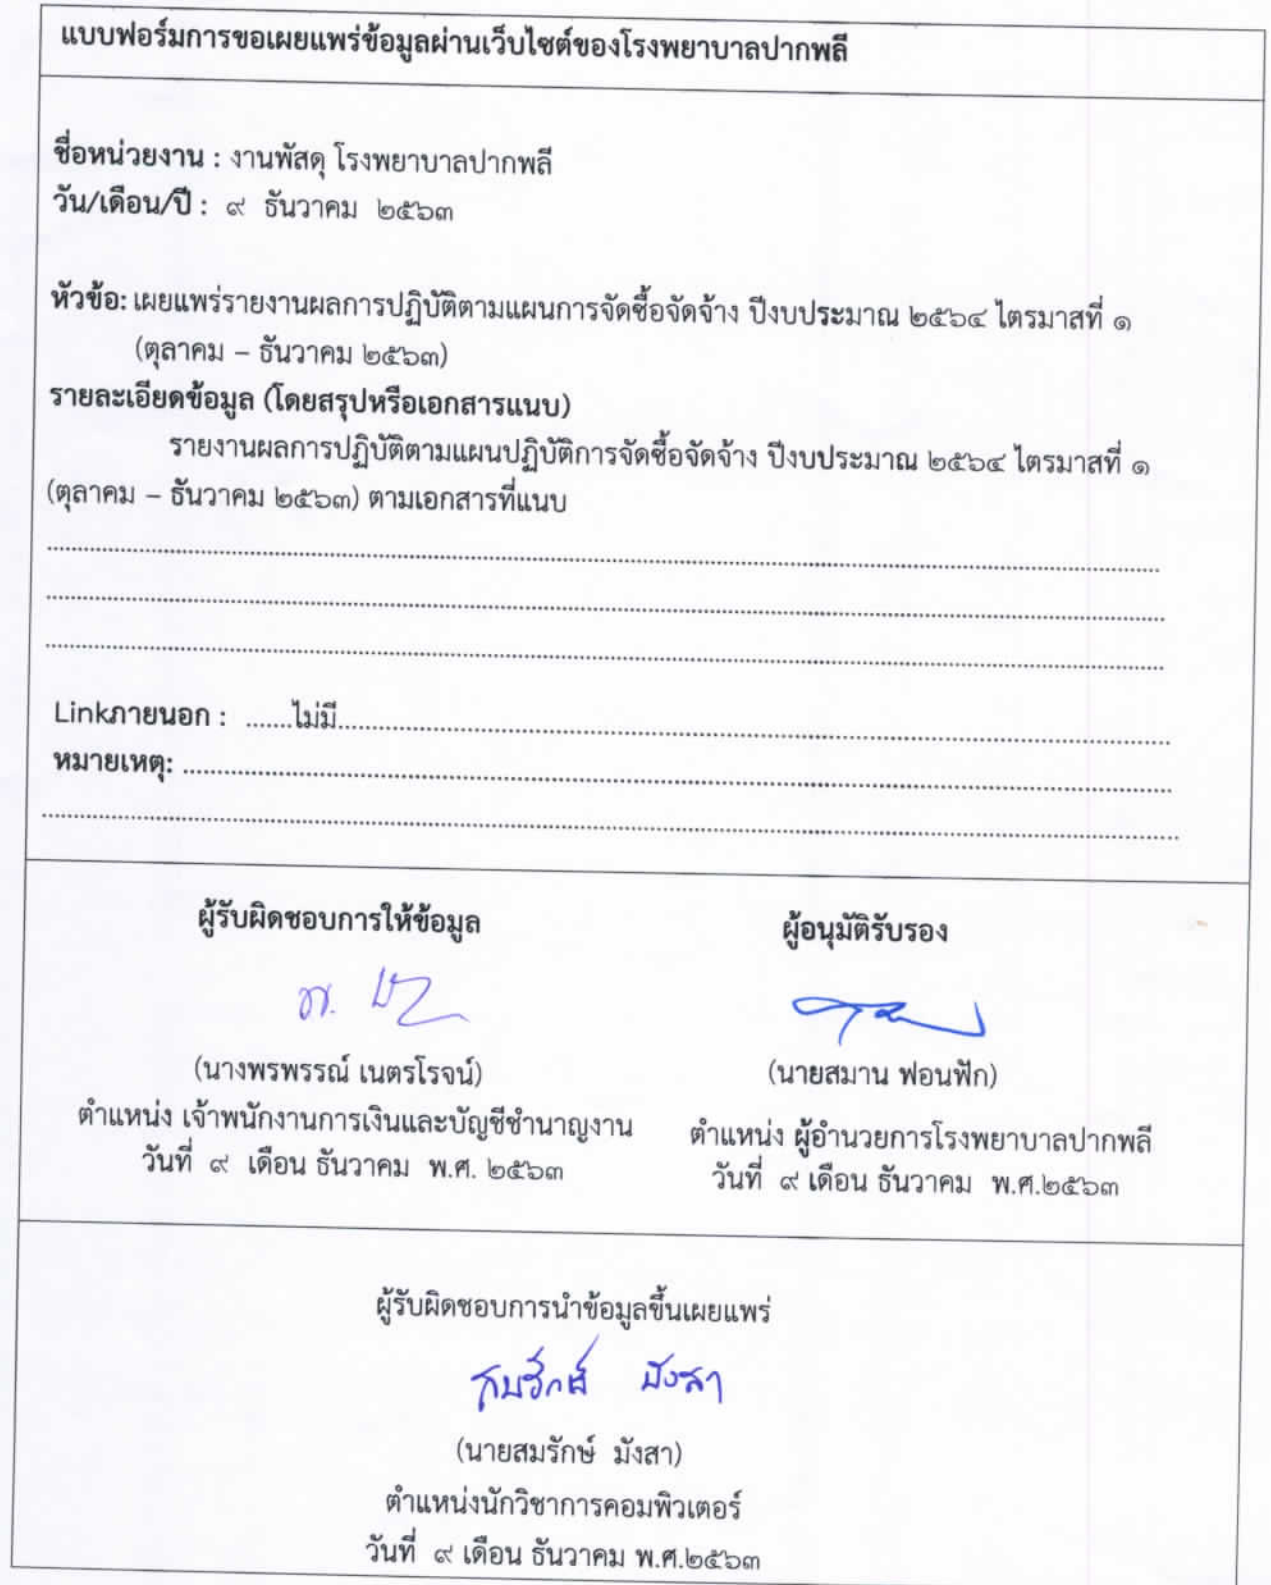 แบบฟอร์มการขอเผยแพร่ข้อมูลผ่านเว็บไซต์ของโรงพยาบาลปากพลี
ชื่อหน่วยงาน : งานพัสดุ โรงพยาบาลปากพลี
วัน/เดือน/ปี : ๙ ธันวาคม ๒๕๖๓
หัวข้อ: เผยแพร่รายงานผลการปฏิบัติตามแผนการจัดซื้อจัดจ้าง ปีงบประมาณ ๒๕๖๔ ไตรมาสที่ ๑
(ตุลาคม – ธันวาคม ๒๕๖๓)
รายละเอียดข้อมูล (โดยสรุปหรือเอกสารแนบ)
รายงานผลการปฏิบัติตามแผนปฏิบัติการจัดซื้อจัดจ้าง ปีงบประมาณ ๒๕๖๔ ไตรมาสที่ ๑
(ตุลาคม – ธันวาคม ๒๕๖๓) ตามเอกสารที่แนบ
Linkภายนอก : .......ไม่มี..........
หมายเหตุ: ..........
ผู้รับผิดชอบการให้ข้อมูล
(นางพรพรรณ์ เนตรโรจน์)
ตำแหน่ง เจ้าพนักงานการเงินและบัญชีชำนาญงาน
วันที่ ๙ เดือน ธันวาคม พ.ศ. ๒๕๖๓
ผู้อนุมัติรับรอง
(นายสมาน ฟอนฟัก)
ตำแหน่ง ผู้อำนวยการโรงพยาบาลปากพลี
วันที่ ๙ เดือน ธันวาคม พ.ศ.๒๕๖๓
ผู้รับผิดชอบการนำข้อมูลขึ้นเผยแพร่
สมรักษ์ มังสา
(นายสมรักษ์ มังสา)
ตำแหน่งนักวิชาการคอมพิวเตอร์
วันที่ ๙ เดือน ธันวาคม พ.ศ.๒๕๖๓